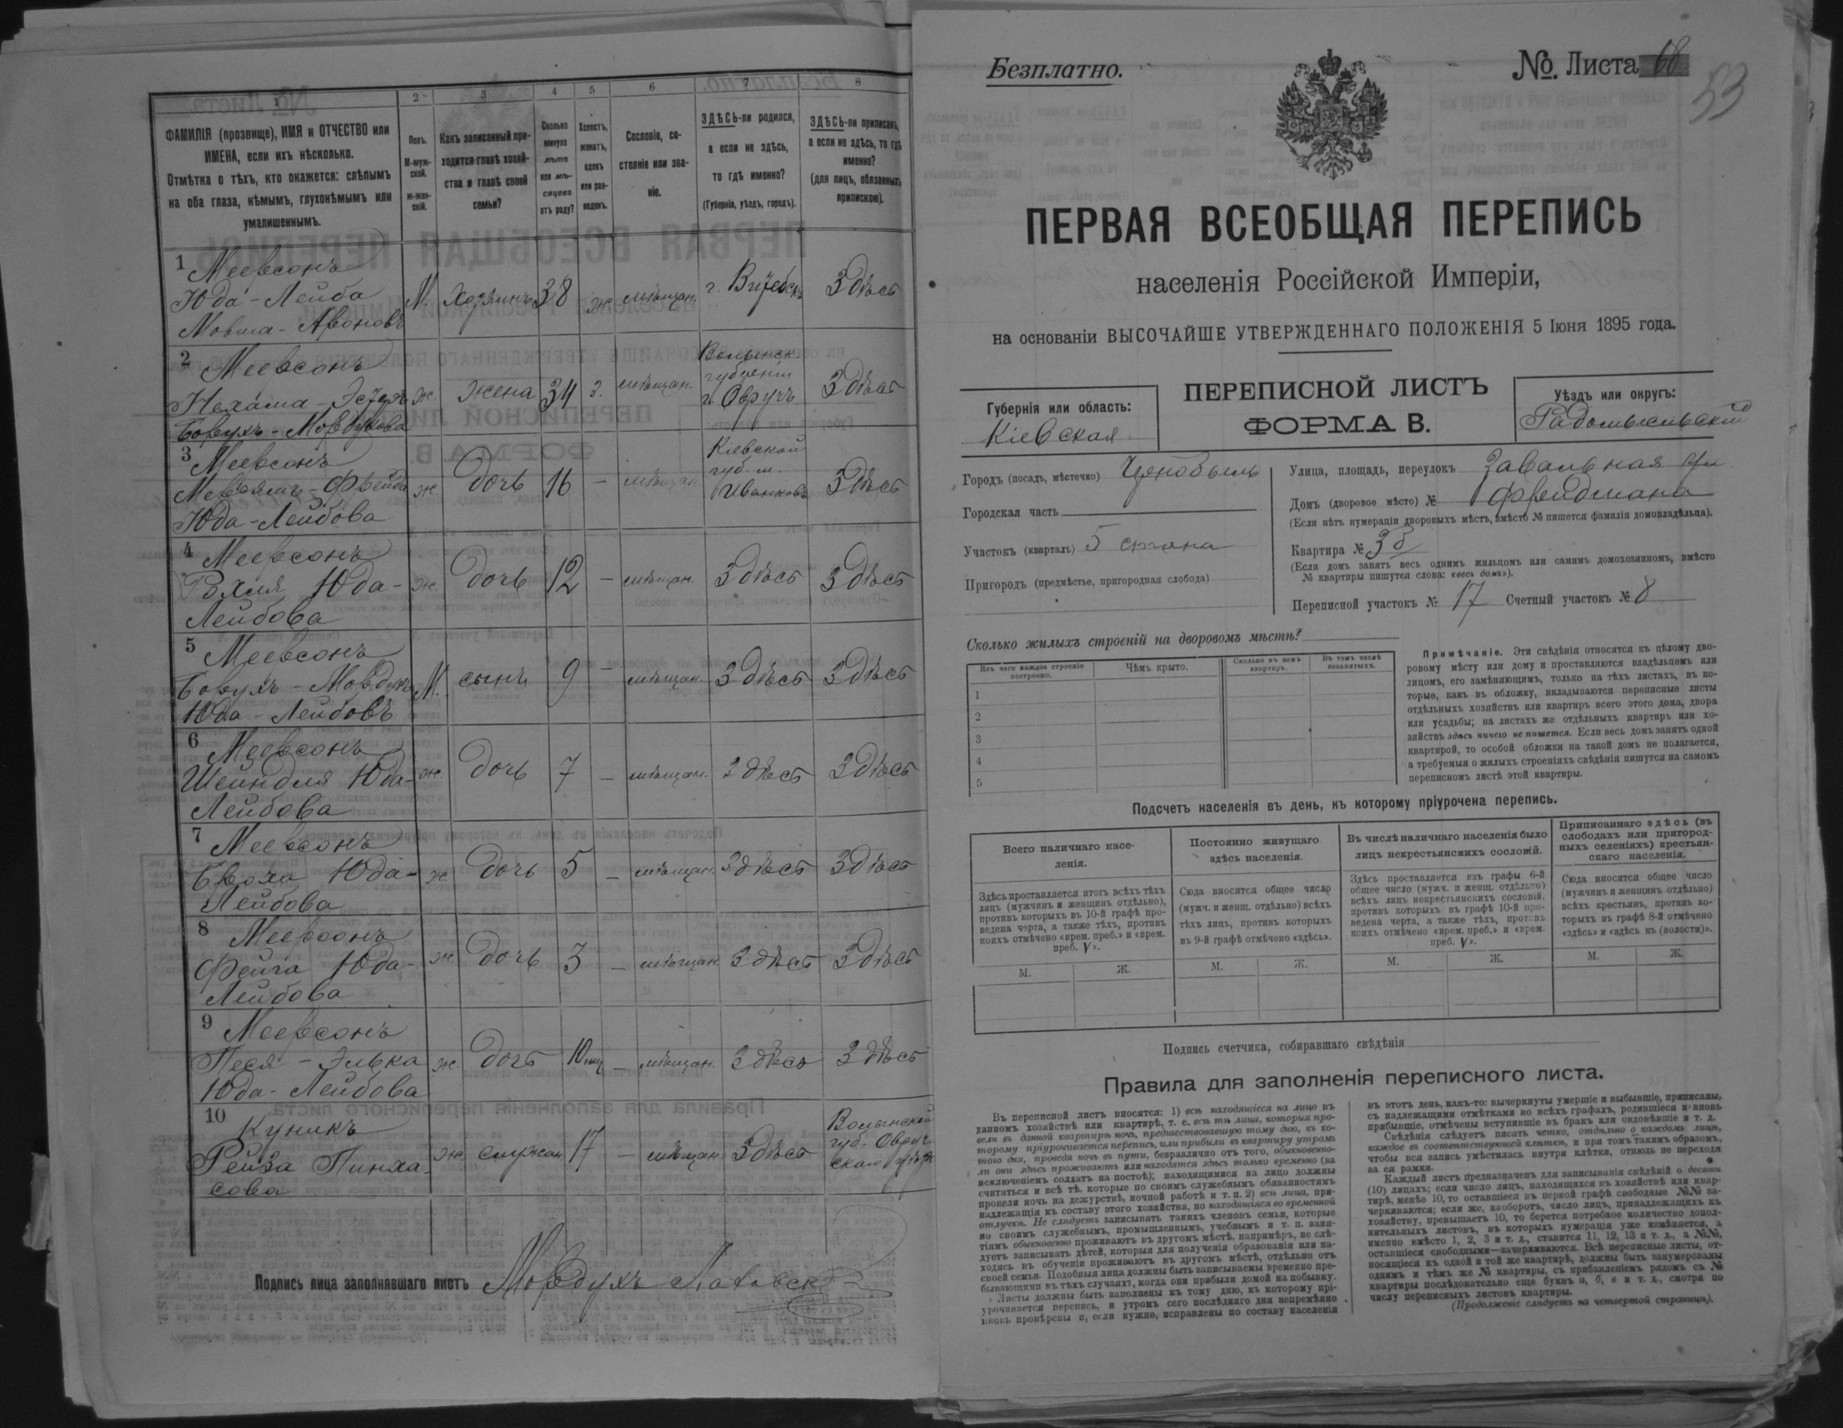 1 2 3 4 5 6 7 8
ФАМИЛІЯ (прозвище), ИМЯ и ОТЧЕСТВО или
ИМЕНА, если ихъ нѣсколько.
Отмѣтка о тѣхъ, кто окажется: слѣпымъ
на оба глаза, нѣмымъ, глухонѣмымъ или
умалишеннымъ.
Полъ.
М-муж-
ской.
Ж-жен-
скій.
Какъ записанный при-
ходится главѣ хозяй-
ства и главѣ своей
семьи?
Сколько
минуло
лѣтъ
или мѣ-
сяцевъ
отъ роду?
Холостъ,
женатъ,
вдовъ
или раз-
веденъ.
Сословіе, со-
стояніе или зва-
ніе.
ЗДѢСЬ-ли родился,
а если не здѣсь,
то гдѣ именно?
(Губернія, уѣздъ, городъ).
ЗДѢСЬ-ли приписанъ,
а если не здѣсь, то гдѣ
именно?
(для лицъ, обязанныхъ
припискою).
1 Меевсонъ
Юда-Лейба
Мовша-Ароновъ
М. Хозяинъ 38 ж мѣщан. г. Витебскъ Здѣсь
2 Меевсонъ
Нехама-Эстеръ
Борухъ-Мордухова
ж жена 34 з. мѣщан.
Волынск.
губерніи
г. Овручъ
Здѣсь
3 Меевсонъ
Мерьямъ-Фрейда
Юда-Лейбова
ж дочь 16 - мѣщан.
Кіевской
губ. м.
Иванковъ
Здѣсь
4 Меевсонъ
Рохля Юда-
Лейбова
ж дочь 12 - мѣщан. Здѣсь Здѣсь
5 Меевсонъ
Борухъ-Мордухъ
Юда-Лейбовъ
М. сынъ 9 - мѣщан. Здѣсь Здѣсь
6 Меевсонъ
Шейндля Юда-
Лейбова
ж дочь 7 - мѣщан. Здѣсь Здѣсь
7 Меевсонъ
Юда-
Лейбова
ж дочь 5 - мѣщан. Здѣсь Здѣсь
8 Меевсонъ
Фейга Юда-
Лейбова
ж дочь 3 - мѣщан Здѣсь Здѣсь
9 Меевсонъ
Песя-Элька
Юда-Лейбова
ж дочь 10 мѣс - мѣщан. Здѣсь Здѣсь
10 Куникъ
Рейза Пинха-
сова
ж служан 17 - мѣщан Здѣсь
Волынской
губ. Овруч
скаго уѣзд
Подпись лица заполнявшаго листъ Мордухъ
Безплатно.
№ Листа 68
53
ПЕРВАЯ ВСЕОБЩАЯ ПЕРЕПИСЬ
населенія Россійской Имперіи,
на основаніи ВЫСОЧАЙШЕ УТВЕРЖДЕННАГО ПОЛОЖЕНІЯ 5 Іюня 1895 года.
ПЕРЕПИСНОЙ ЛИСТЪ
ФОРМА В.
Губернія или область:
Кіевская
Уѣздъ или округъ:
Радомысльскій
Городъ (посадъ, мѣстечко) Чернобыль
Городская часть
Участокъ (кварталъ) 5 стана
Пригородъ (предмѣстье, пригородная слобода)
Улица, площадь, переулокъ Завальная ул
Домъ (дворовое мѣсто) № Фрейдмана
(Если нѣтъ нумераціи дворовыхъ мѣстъ, вмѣсто № пишется фамилія домовладѣльца).
Квартира № 3 б
(Если домъ занятъ весь однимъ жильцомъ или самимъ домохозяиномъ, вмѣсто
№ квартиры пишутся слова: «весь домъ»).
Переписной участокъ № 17 Счетный участокъ № 8
Сколько жилыхъ строеній на дворовомъ мѣстѣ?
Изъ чего каждое строеніе
построено.
Чѣмъ крыто.
Сколько въ немъ
квартиръ.
Въ томъ числѣ
незанятыхъ.
1
2
3
4
5
Примѣчаніе. Эти свѣдѣнія относятся къ цѣлому дво-
ровому мѣсту или дому и проставляются владѣльцемъ или
лицомъ, его замѣняющимъ, только на тѣхъ листахъ, въ ко-
торые, какъ въ обложку, вкладываются переписные листы
отдѣльныхъ хозяйствъ или квартиръ всего этого дома, двора
или усадьбы; на листахъ же отдѣльныхъ квартиръ или хо-
зяйствъ здѣсь ничего не пишется. Если весь домъ занятъ одной
квартирой, то особой обложки на такой домъ не полагается,
а требуемыя о жилыхъ строеніяхъ свѣдѣнія пишутся на самомъ
переписномъ листѣ этой квартиры.
Подсчетъ населенія въ день, къ которому пріурочена перепись.
Всего наличнаго насе-
ленія.
Постоянно живущаго
здѣсь населенія.
Въ числѣ наличнаго населенія было
лицъ некрестьянскихъ сословій.
Приписаннаго здѣсь (въ
слободахъ или пригород-
ныхъ селеніяхъ) крестьян-
скаго населенія.
Здѣсь проставляется итогъ всѣхъ тѣхъ
лицъ (мужчинъ и женщинъ отдѣльно),
противъ которыхъ въ 10-й графѣ про-
ведена черта, а также тѣхъ, противъ
коихъ отмѣчено «врем. преб.» и «врем.
преб. V».
Сюда вносится общее число
(мужч. и женщ. отдѣльно) всѣхъ
тѣхъ лицъ, противъ которыхъ
въ 9-й графѣ отмѣчено «здѣсь».
Здѣсь проставляется изъ графы 6-й
общее число (мужч. и женщ. отдѣльно)
всѣхъ лицъ некрестьянскихъ сословій,
противъ которыхъ въ графѣ 10-й про-
ведена черта, а также тѣхъ, противъ
коихъ отмѣчено «врем. преб.» и «врем.
преб. V».
Сюда вносится общее число
(мужчинъ и женщинъ отдѣльно)
всѣхъ крестьянъ, противъ ко-
торыхъ въ графѣ 8-й отмѣчено
«здѣсь» и «здѣсь къ (волости)».
М. Ж. М. Ж. М. Ж. М. Ж.
Подпись счетчика, собиравшаго свѣдѣнія
Правила для заполненія переписного листа.
Въ переписной листъ вносятся: 1) всѣ находящіеся на лицо въ
данномъ хозяйствѣ или квартирѣ, т. е. всѣ тѣ лица, которыя про-
вели въ данной квартирѣ ночь, предшествовавшую тому дню, къ ко-
торому пріурочивается перепись, или прибыли въ квартиру утромъ
того дня, проведя ночь въ пути, безразлично отъ того, обыкновенно-
ли они здѣсь проживаютъ или находятся здѣсь только временно (за
исключеніемъ солдатъ на постоѣ); находящимися на лицо должны
считаться и всѣ тѣ, которые по своимъ служебнымъ обязанностямъ
провели ночь на дежурствѣ, ночной работѣ и т. п. 2) всѣ лица, при-
надлежащія къ составу этого хозяйства, но находящіяся во временной
отлучкѣ. Не слѣдуетъ записывать такихъ членовъ семьи, которые
по своимъ служебнымъ, промышленнымъ, учебнымъ и т. п. заня-
тіямъ обыкновенно проживаютъ въ другомъ мѣстѣ, напримѣръ, не слѣ-
дуетъ записывать дѣтей, которыя для полученія образованія или на-
ходясь въ обученіи проживаютъ въ другомъ мѣстѣ, отдѣльно отъ
своей семьи. Подобныя лица должны быть записываемы временно пре-
бывающими въ тѣхъ случаяхъ, когда они прибыли домой на побывку.
Листы должны быть заполнены къ тому дню, къ которому прі-
урочивается перепись, и утромъ сего послѣдняго дня непремѣнно
вновь провѣрены и, если нужно, исправлены по составу населенія
въ этотъ день, какъ-то: вычеркнуты умершіе и выбывшіе, приписаны,
съ надлежащими отмѣтками во всѣхъ графахъ, родившіеся и вновь
прибывшіе, отмѣчены вступившіе въ бракъ или овдовѣвшіе и т. д.
Свѣдѣнія слѣдуетъ писать четко, отдѣльно о каждомъ лицѣ,
каждое въ соотвѣтствующей клѣткѣ, и при томъ такимъ образомъ,
чтобы вся запись умѣстилась внутри клѣтки, отнюдь не переходя
за ея рамки.
Каждый листъ предназначенъ для записыванія свѣдѣній о десяти
(10) лицахъ; если число лицъ, находящихся въ хозяйствѣ или квар-
тирѣ, менѣе 10, то оставшіеся въ первой графѣ свободные №№ за-
черкиваются; если же, наоборотъ, число лицъ, принадлежащихъ къ
хозяйству, превышаетъ 10, то берется потребное количество допол-
нительныхъ листовъ, въ которыхъ нумерація уже измѣняется, а
именно вмѣсто 1, 2, 3 и т. д., ставится 11, 12, 13 и т. д., а №№,
оставшіеся свободными—зачеркиваются. Всѣ переписные листы, от-
носящіеся къ одной и той же квартирѣ, должны быть занумерованы
однимъ и тѣмъ же № квартиры, съ прибавленіемъ рядомъ съ №
квартиры послѣдовательно еще буквъ а, б, в и т. д., смотря по
числу переписныхъ листовъ квартиры.
(Продолженіе слѣдуетъ на четвертой страницѣ).